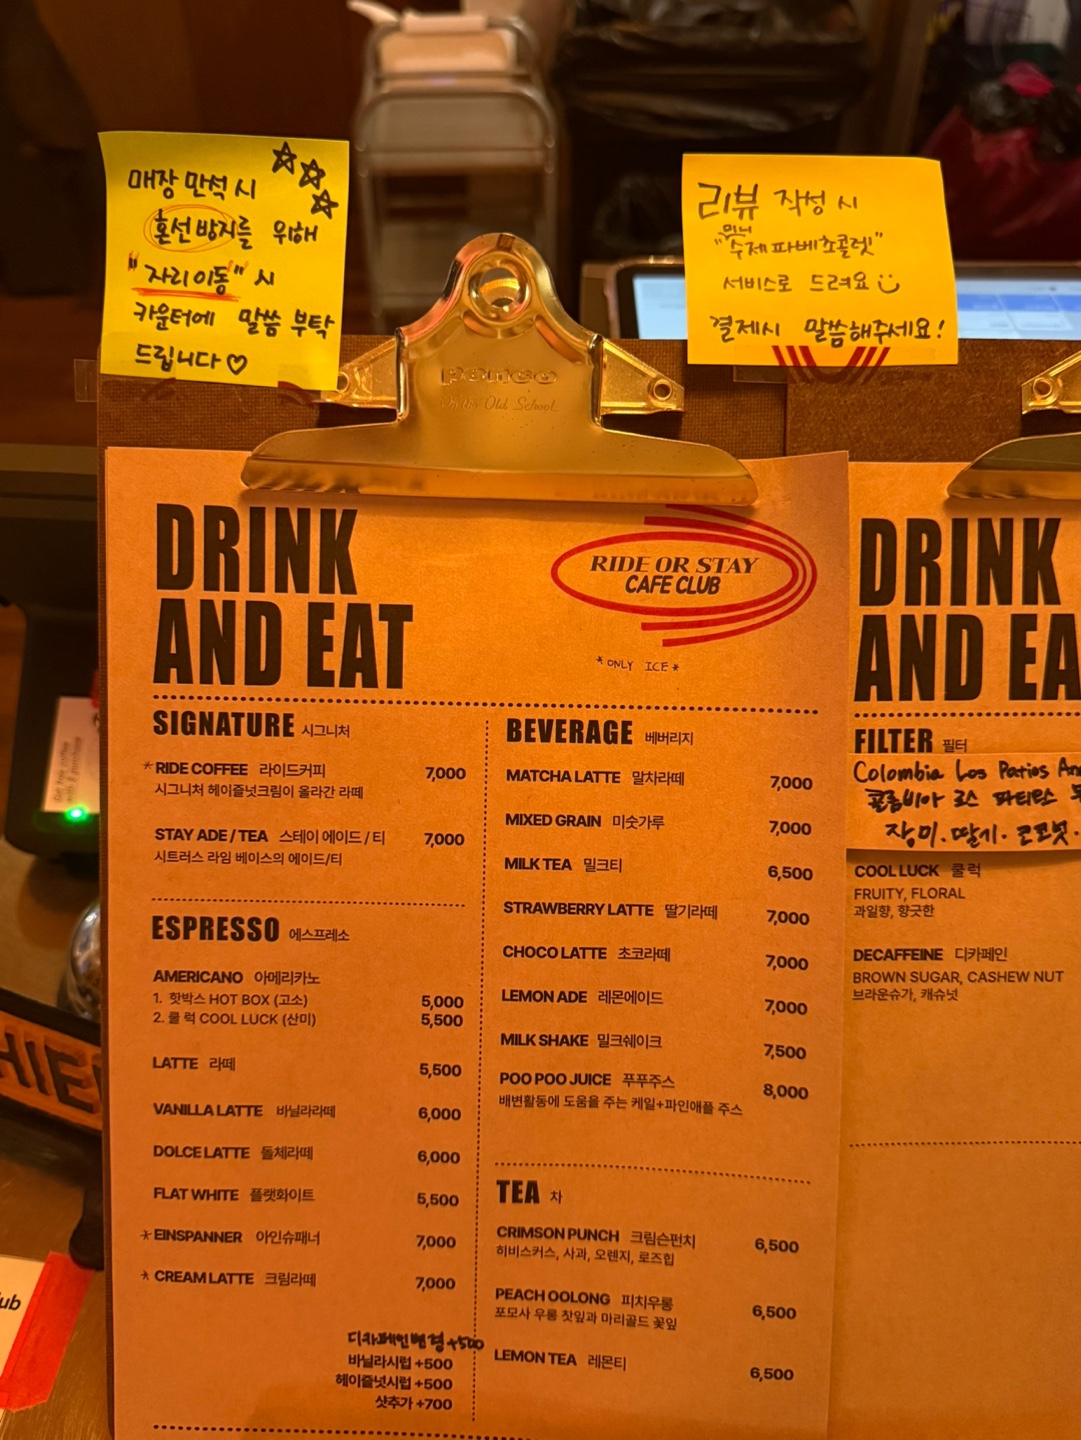 매장 만석 시
혼선방지를 위해
"자리이동" 시
카운터에 말씀 부탁
드립니다♡
리뷰 작성 시
미니
"수제파베초콜렛"
서비스로 드려요
결제시 말씀해주세요!
ponco
Old School
DRINK
AND EAT
RIDE OR STAY
CAFE CLUB
*ONLY ICE*
SIGNATURE 시그니처
*RIDE COFFEE 라이드커피 7,000
시그니처 헤이즐넛크림이 올라간 라떼
STAY ADE / TEA 스테이 에이드 / 티 7,000
시트러스 라임 베이스의 에이드/티
ESPRESSO 에스프레소
AMERICANO 아메리카노
1. 핫박스 HOT BOX (고소) 5,000
2. 쿨 럭 COOL LUCK (산미) 5,500
LATTE 라떼 5,500
VANILLA LATTE 바닐라라떼 6,000
DOLCE LATTE 돌체라떼 6,000
FLAT WHITE 플랫화이트 5,500
*EINSPANNER 아인슈패너 7,000
*CREAM LATTE 크림라떼 7,000
디카페인변경+500
바닐라시럽 +500
헤이즐넛시럽 +500
샷추가 +700
BEVERAGE 베버리지
MATCHA LATTE 말차라떼 7,000
MIXED GRAIN 미숫가루 7,000
MILK TEA 밀크티 6,500
STRAWBERRY LATTE 딸기라떼 7,000
CHOCO LATTE 초코라떼 7,000
LEMON ADE 레몬에이드 7,000
MILK SHAKE 밀크쉐이크 7,500
POO POO JUICE 푸푸주스 8,000
배변활동에 도움을 주는 케일+파인애플 주스
TEA 차
CRIMSON PUNCH 크림슨펀치 6,500
히비스커스, 사과, 오렌지, 로즈힙
PEACH OOLONG 피치우롱 6,500
포모사 우롱 찻잎과 마리골드 꽃잎
LEMON TEA 레몬티 6,500
DRINK
AND EA
FILTER 필터
Colombia Los Patios
콜롬비아 로스 파티오스
장미.딸기.코코넛.
COOL LUCK 쿨 럭
FRUITY, FLORAL
과일향, 향긋한
DECAFFEINE 디카페인
BROWN SUGAR, CASHEW NUT
브라운슈가, 캐슈넛
HIE
lub